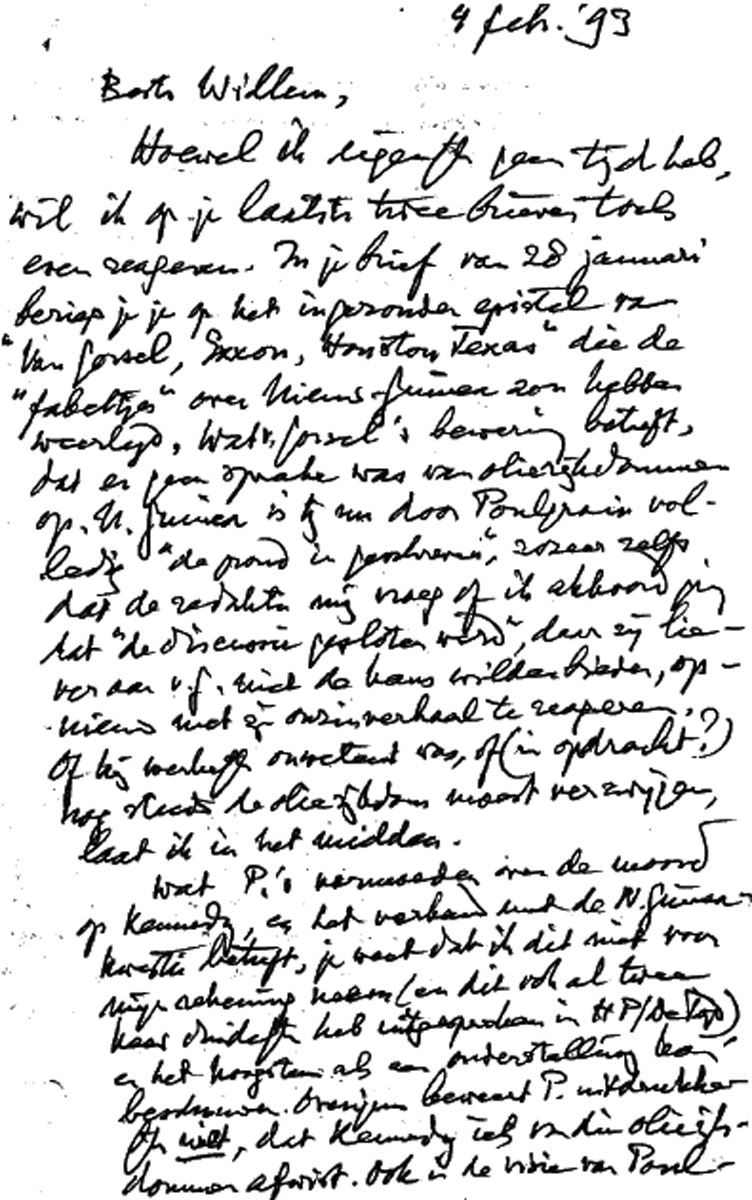 4 feb. '93
Beste Willem,
Hoewel ik eigenlijk geen tijd heb,
wil ik op je laatste twee brieven toch
even reageren. In je brief van 28 januari
beriep je je op het ingezonden epistel van
"Van Gorsel, Exxon, Houston, Texas" die de
"fabeltjes" over Nieuw-Guinea zou hebben
weerlegd. Wat v. Gorsel's bewering betreft,
dat er geen sprake was van olierijkdommen
op N. Guinea is hij nu door Poulgrain vol-
ledig "de grond in geschreven", zozeer zelfs
dat de redaktie mij vroeg of ik akkoord ging
dat "de discussie gesloten werd", daar zij lie-
ver aan v.G. niet de kans wilden bieden, op-
nieuw met z'n onzinverhaal te reageren.
Of hij werkelijk onwetend was, of (in opdracht?)
nog steeds de olierijkdom moest verzwijgen,
laat ik in het midden.
Wat P.'s vermoeden over de moord
op Kennedy, en het verband met de N. Guinea-
kwestie betreft, je weet dat ik dit niet voor
mijn rekening neem (en dit ook al twee
keer duidelijk heb uitgesproken in HP/De Tijd)
en het hoogstens als een onderstelling kan
beschouwen. Overigens beweert P. uitdrukke-
lijk niet, dat Kennedy iets van die olierijk-
dommen afwist. Ook in de visie van Poul-